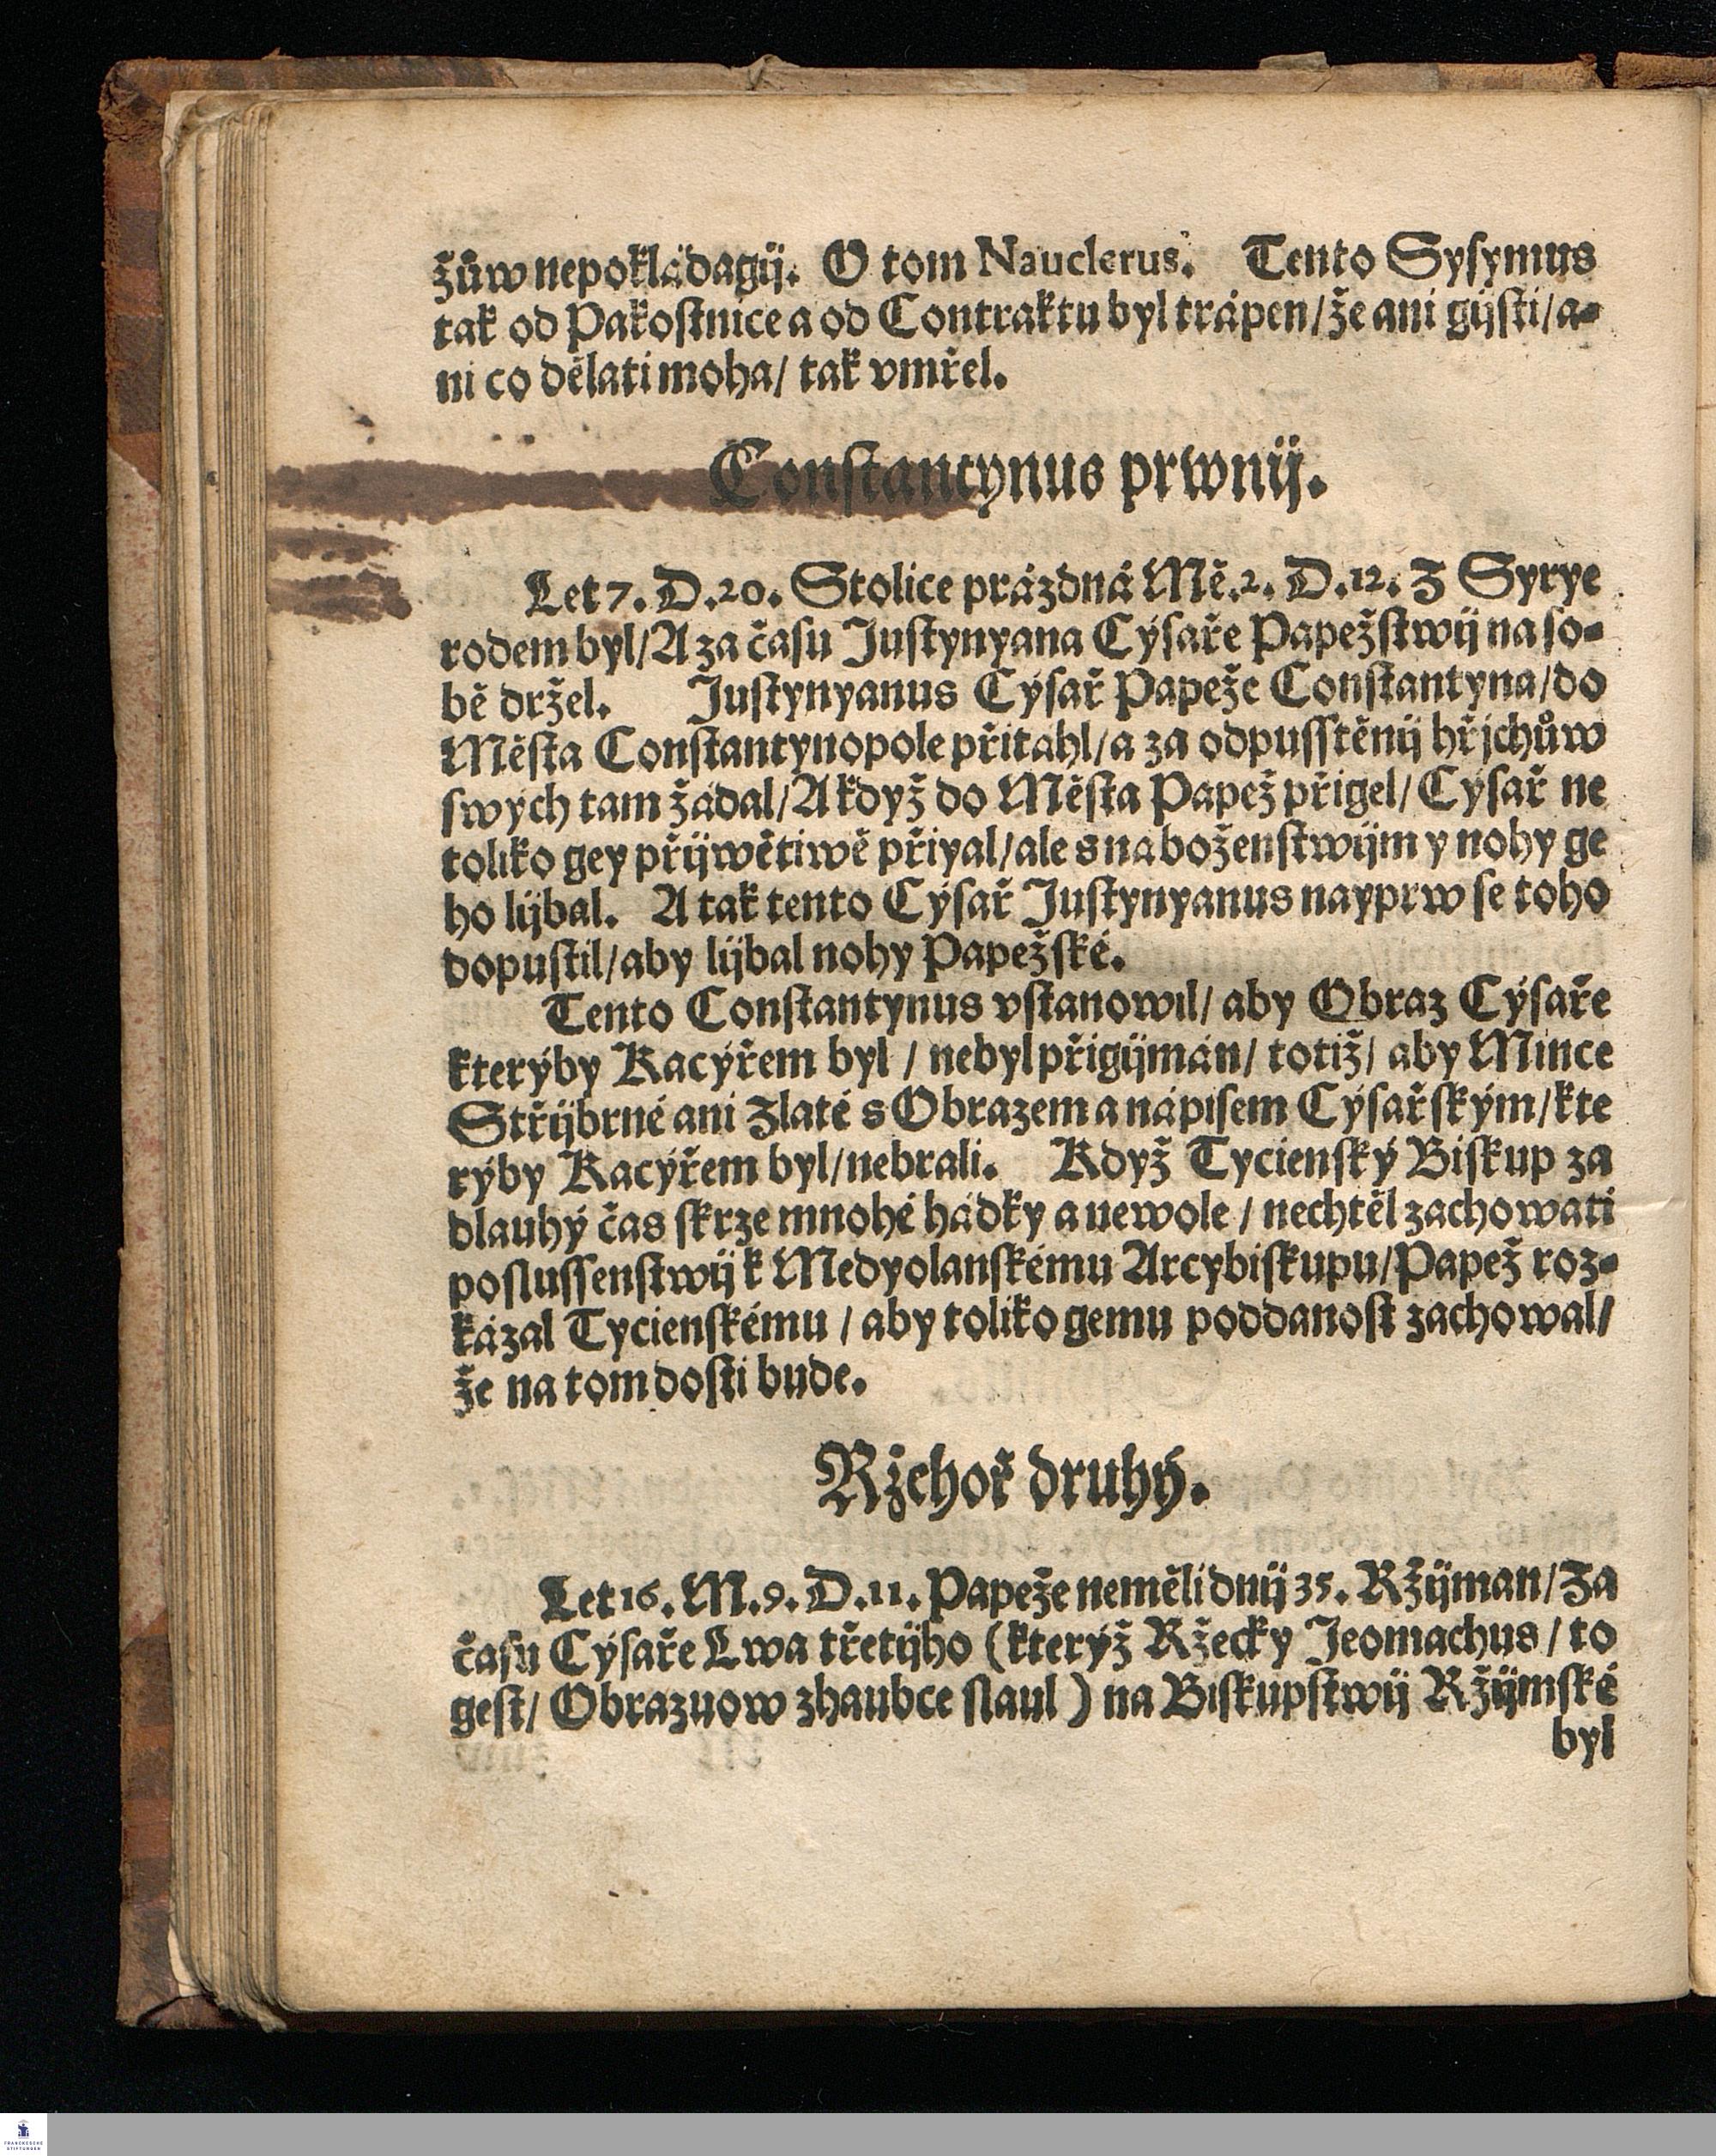 žůw nepokládagij. O tom Nauclerus. Tento Sysynus
tak od Pakostnice a od Contraktu byl trápen/že ani gijsti/a-
ni co dělati moha/ tak vmřel.
Constantynus prwnij.
Let 7. D. 20. Stolice prázdná Mě. 2. D. 12. Z Syrye
rodem byl/A za času Justynyana Cýsaře Papežstwij na so-
bě držel. Justynyanus Cýsař Papeže Constantyna/do
Města Constantynopole přitahl/a za odpusstěnij hřjchůw
swých tam žádal/A když do Města Papež přigel/Cýsař ne
toliko gey přijwětiwě přiyal/ale s naboženstwijm y nohy ge
ho lijbal. A tak tento Cýsař Justynyanus nayprw se toho
dopustil/aby lijbal nohy Papežské.
Tento Constantynus vstanowil/ aby Obraz Cýsaře
kterýby Kacýřem byl / nebyl přigijmán/ totiž/ aby Mince
Střijbrné ani Zlaté s Obrazem a nápisem Cýsařským/kte
rýby Kacýřem byl/nebrali. Když Tycienský Biskup za
dlauhý čas skrze mnohé hádky a newole / nechtěl zachowati
poslussenstwij k Medyolanskému Arcybiskupu/Papež roz-
kázal Tycienskému / aby toliko gemu poddanost zachowal/
že na tom dosti bude.
Ržehoř druhý.
Let 16. M. 9. D. 11. Papeže neměli dnij 35. Ržijman/Za
času Cýsaře Lwa třetijho (kterýž Ržecky Jeomachus / to
gest/ Obrazuow zhaubce slaul) na Biskupstwij Ržijmské
byl
FRANCKESCHE
STIFTUNGEN